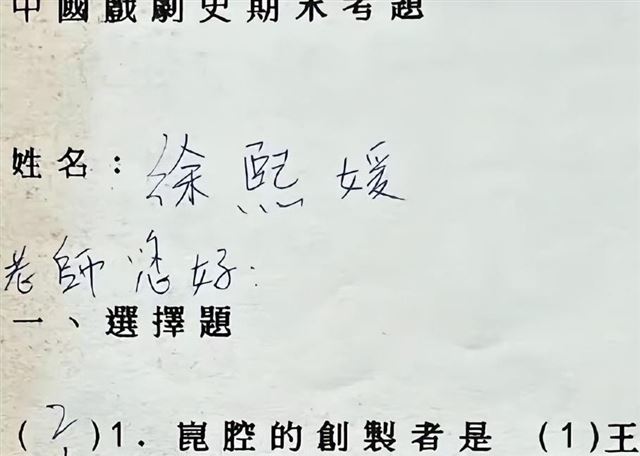 中國戲劇史期末考題
姓名：徐熙媛
老師您好：
一、選擇題
(2)1. 崑腔的創製者是 (1)王